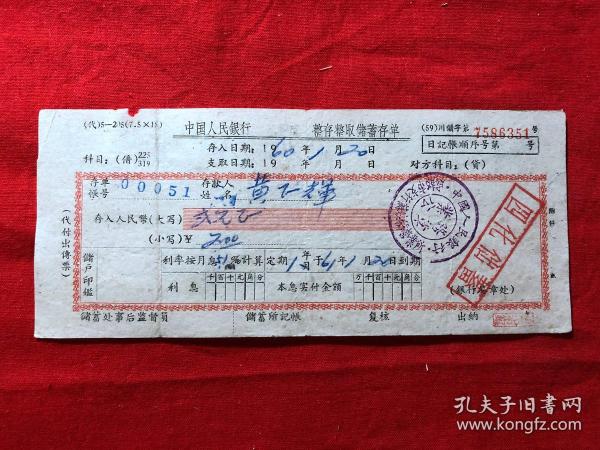 (代)5—205(7.5×18)
中国人民銀行 整存整取儲蓄存单
(59)川儲字第7586351号
存入日期: 1960年1月20日
支取日期: 19 年 月 日
日記帳順序号第 号
科目: (借)225 319
对方科目: (貸)
存单帳号 00051
存款人姓名
存入人民幣(大写)
(小写)¥ 2.00
(代付出傳票)
附件
利率按月息 ‰計算定期1年 月于61年1月20日到期
儲戶印鑑
利息 千百十元角分
本息实付金額 万千百十元角分
(銀行 章处)
儲蓄处事后监督員 儲蓄所記帳 复核 出納
孔夫子旧书网
www.kongfz.com